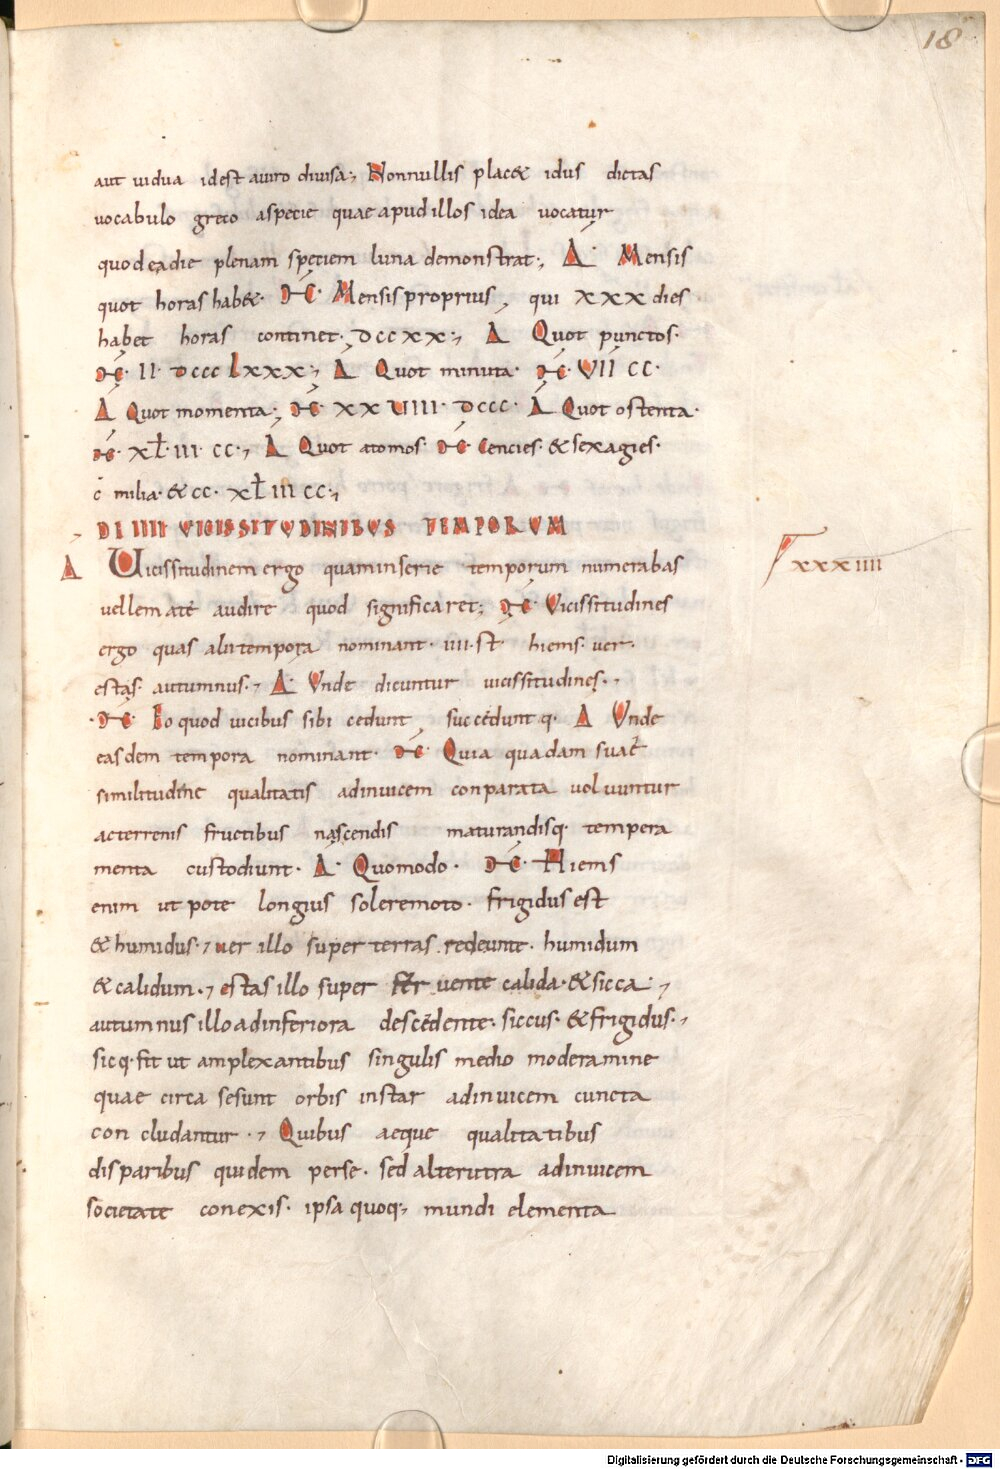 18
aut uidua id est auiro diuisa; Nonnullis plac& idus dictas
uocabulo greco aspecie quae apud illos idea uocatur
quod ea die plenam speciem luna demonstrat; Δ· Mensis
quot horas hab&· M̄· Mensis proprius, qui xxx dies
habet horas continet· dccxx·, Δ Quot punctos·
M̄· II· dccclxxx·, Δ Quot minuta· M̄· VII CC·
Δ Quot momenta·, M̄· xxuiiii· dccc· Δ Quot ostenta·
M̄· xł·iii· cc·, Δ Quot atomos· M̄· Cencies· & sexagies·
c̄ milia· & cc· xł iii cc·,
DE IIII UICISSITUDINIBUS TEMPORUM
Δ Uicissitudinem ergo quam in serie temporum numerabas
uellem a te audire quod significaret; M̄· Vicissitudines
ergo quas alii tempora nominant· iiii· s̄t hiems· uer·
estas· autumnus·, Δ· Vnde dicuntur uicissitudines·,
·M̄· Eo quod uicibus sibi cedunt succedunt q· Δ Vnde
easdem tempora nominant· M̄· Quia quadam suae
similitudine qualitatis adinuicem conparata uoluuntur
ac terrenis fructibus nascendis maturandisq· tempera
menta custodiunt· Δ· Quomodo· M̄· Hiems
enim utpote longius sole remoto· frigidus est
& humidus·, uer illo super terras redeunte· humidum
& calidum·, estas illo super feruente calida· & sicca·,
autumnus illo ad inferiora descēdente· siccus· & frigidus·,
sicq· fit ut amplexantibus singulis medio moderamine
quae circa se sunt orbis instar adinuicem cuncta
concludantur·, Quibus aeque qualitatibus
disparibus quidem per se· sed alterutra adinuicem
societate conexis· ipsa quoq; mundi elementa
xxxiiii
Digitalisierung gefördert durch die Deutsche Forschungsgemeinschaft - DFG